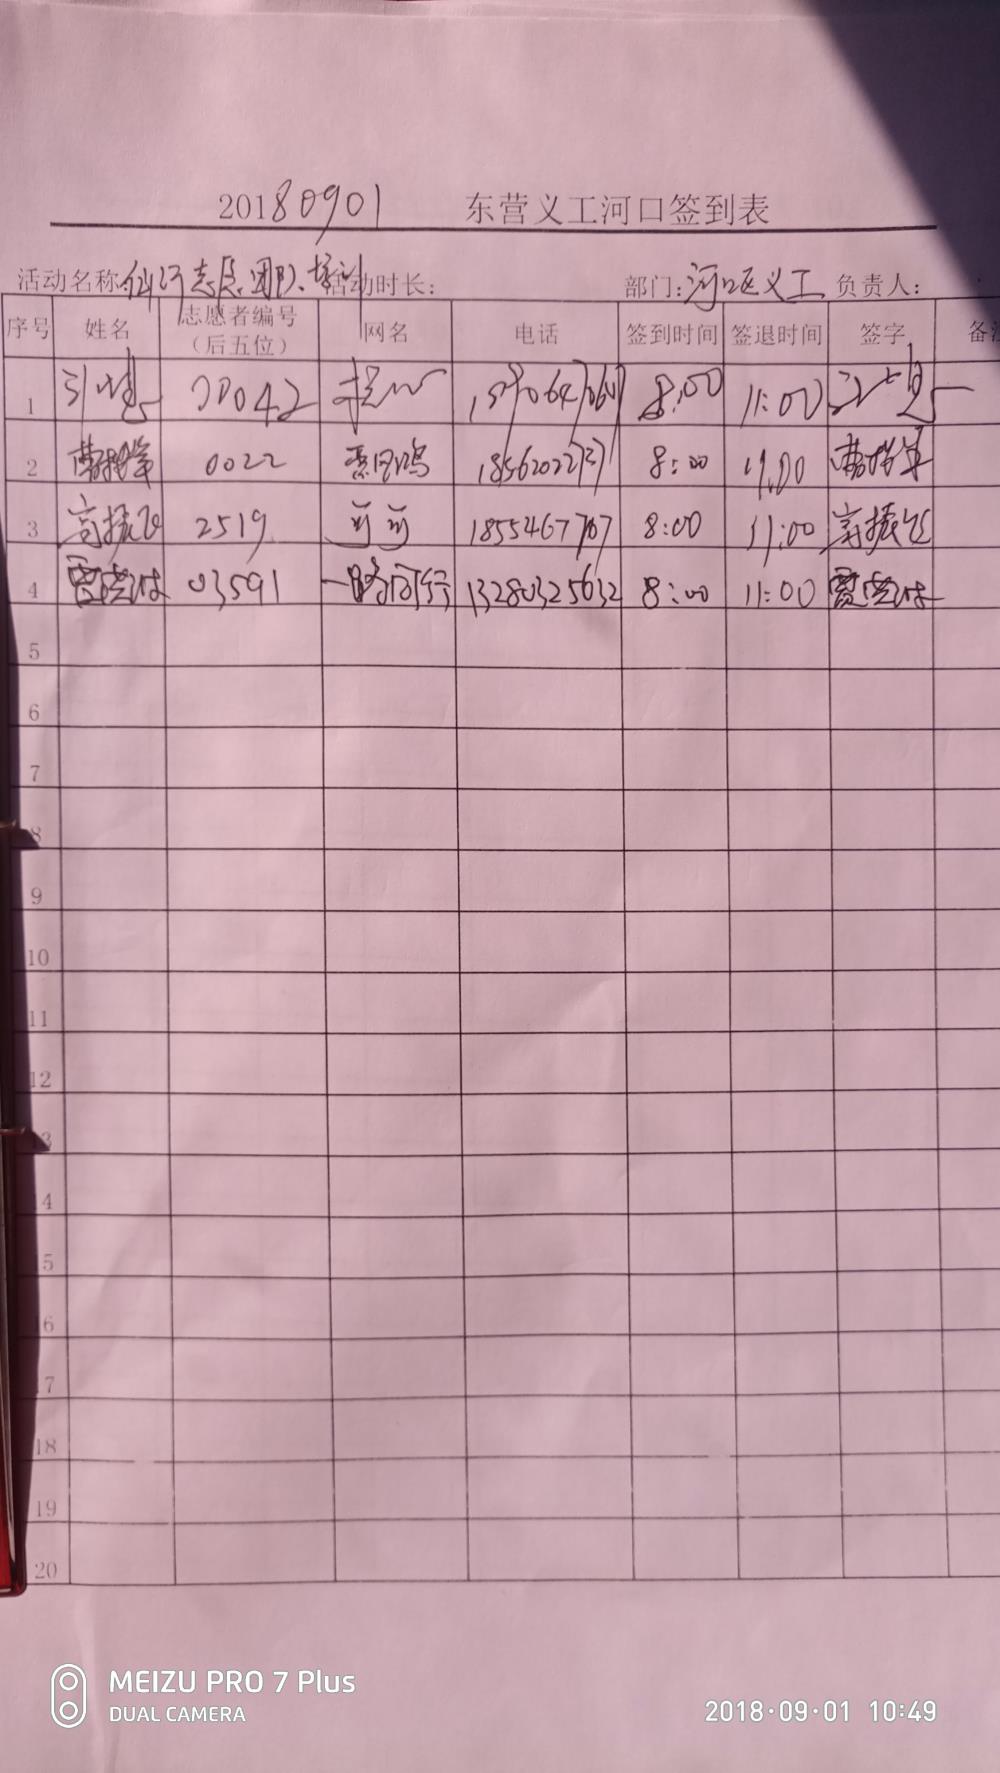 20180901 东营义工河口签到表
活动名称:仙河志愿团队培训 活动时长: 部门:河口区义工 负责人:
序号 姓名 志愿者编号（后五位） 网名 电话 签到时间 签退时间 签字 备注
1 00042 8:00 11:00
2 0022 8:00 11:00
3 高振飞 2519 可可 18554677707 8:00 11:00 高振飞
4 03591 一路同行 13280325632 8:00 11:00
5
6
7
8
9
10
11
12
13
14
15
16
17
18
19
20
MEIZU PRO 7 Plus
DUAL CAMERA
2018·09·01 10:49